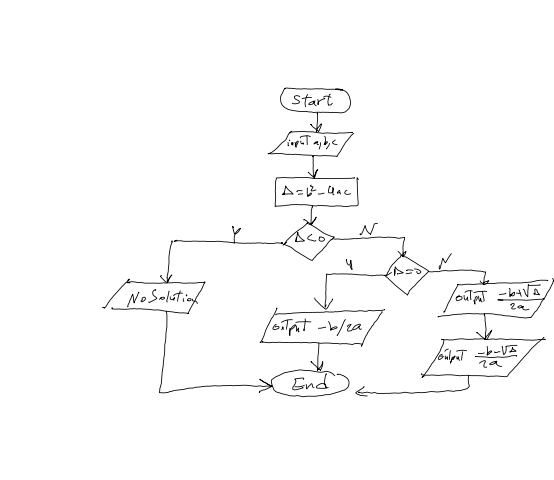 Start
input a,b,c
Δ=b²-4ac
Δ<0
Y
N
Δ=0
Y
N
No Solution
output -b/2a
output (-b+√Δ)/2a
output (-b-√Δ)/2a
End